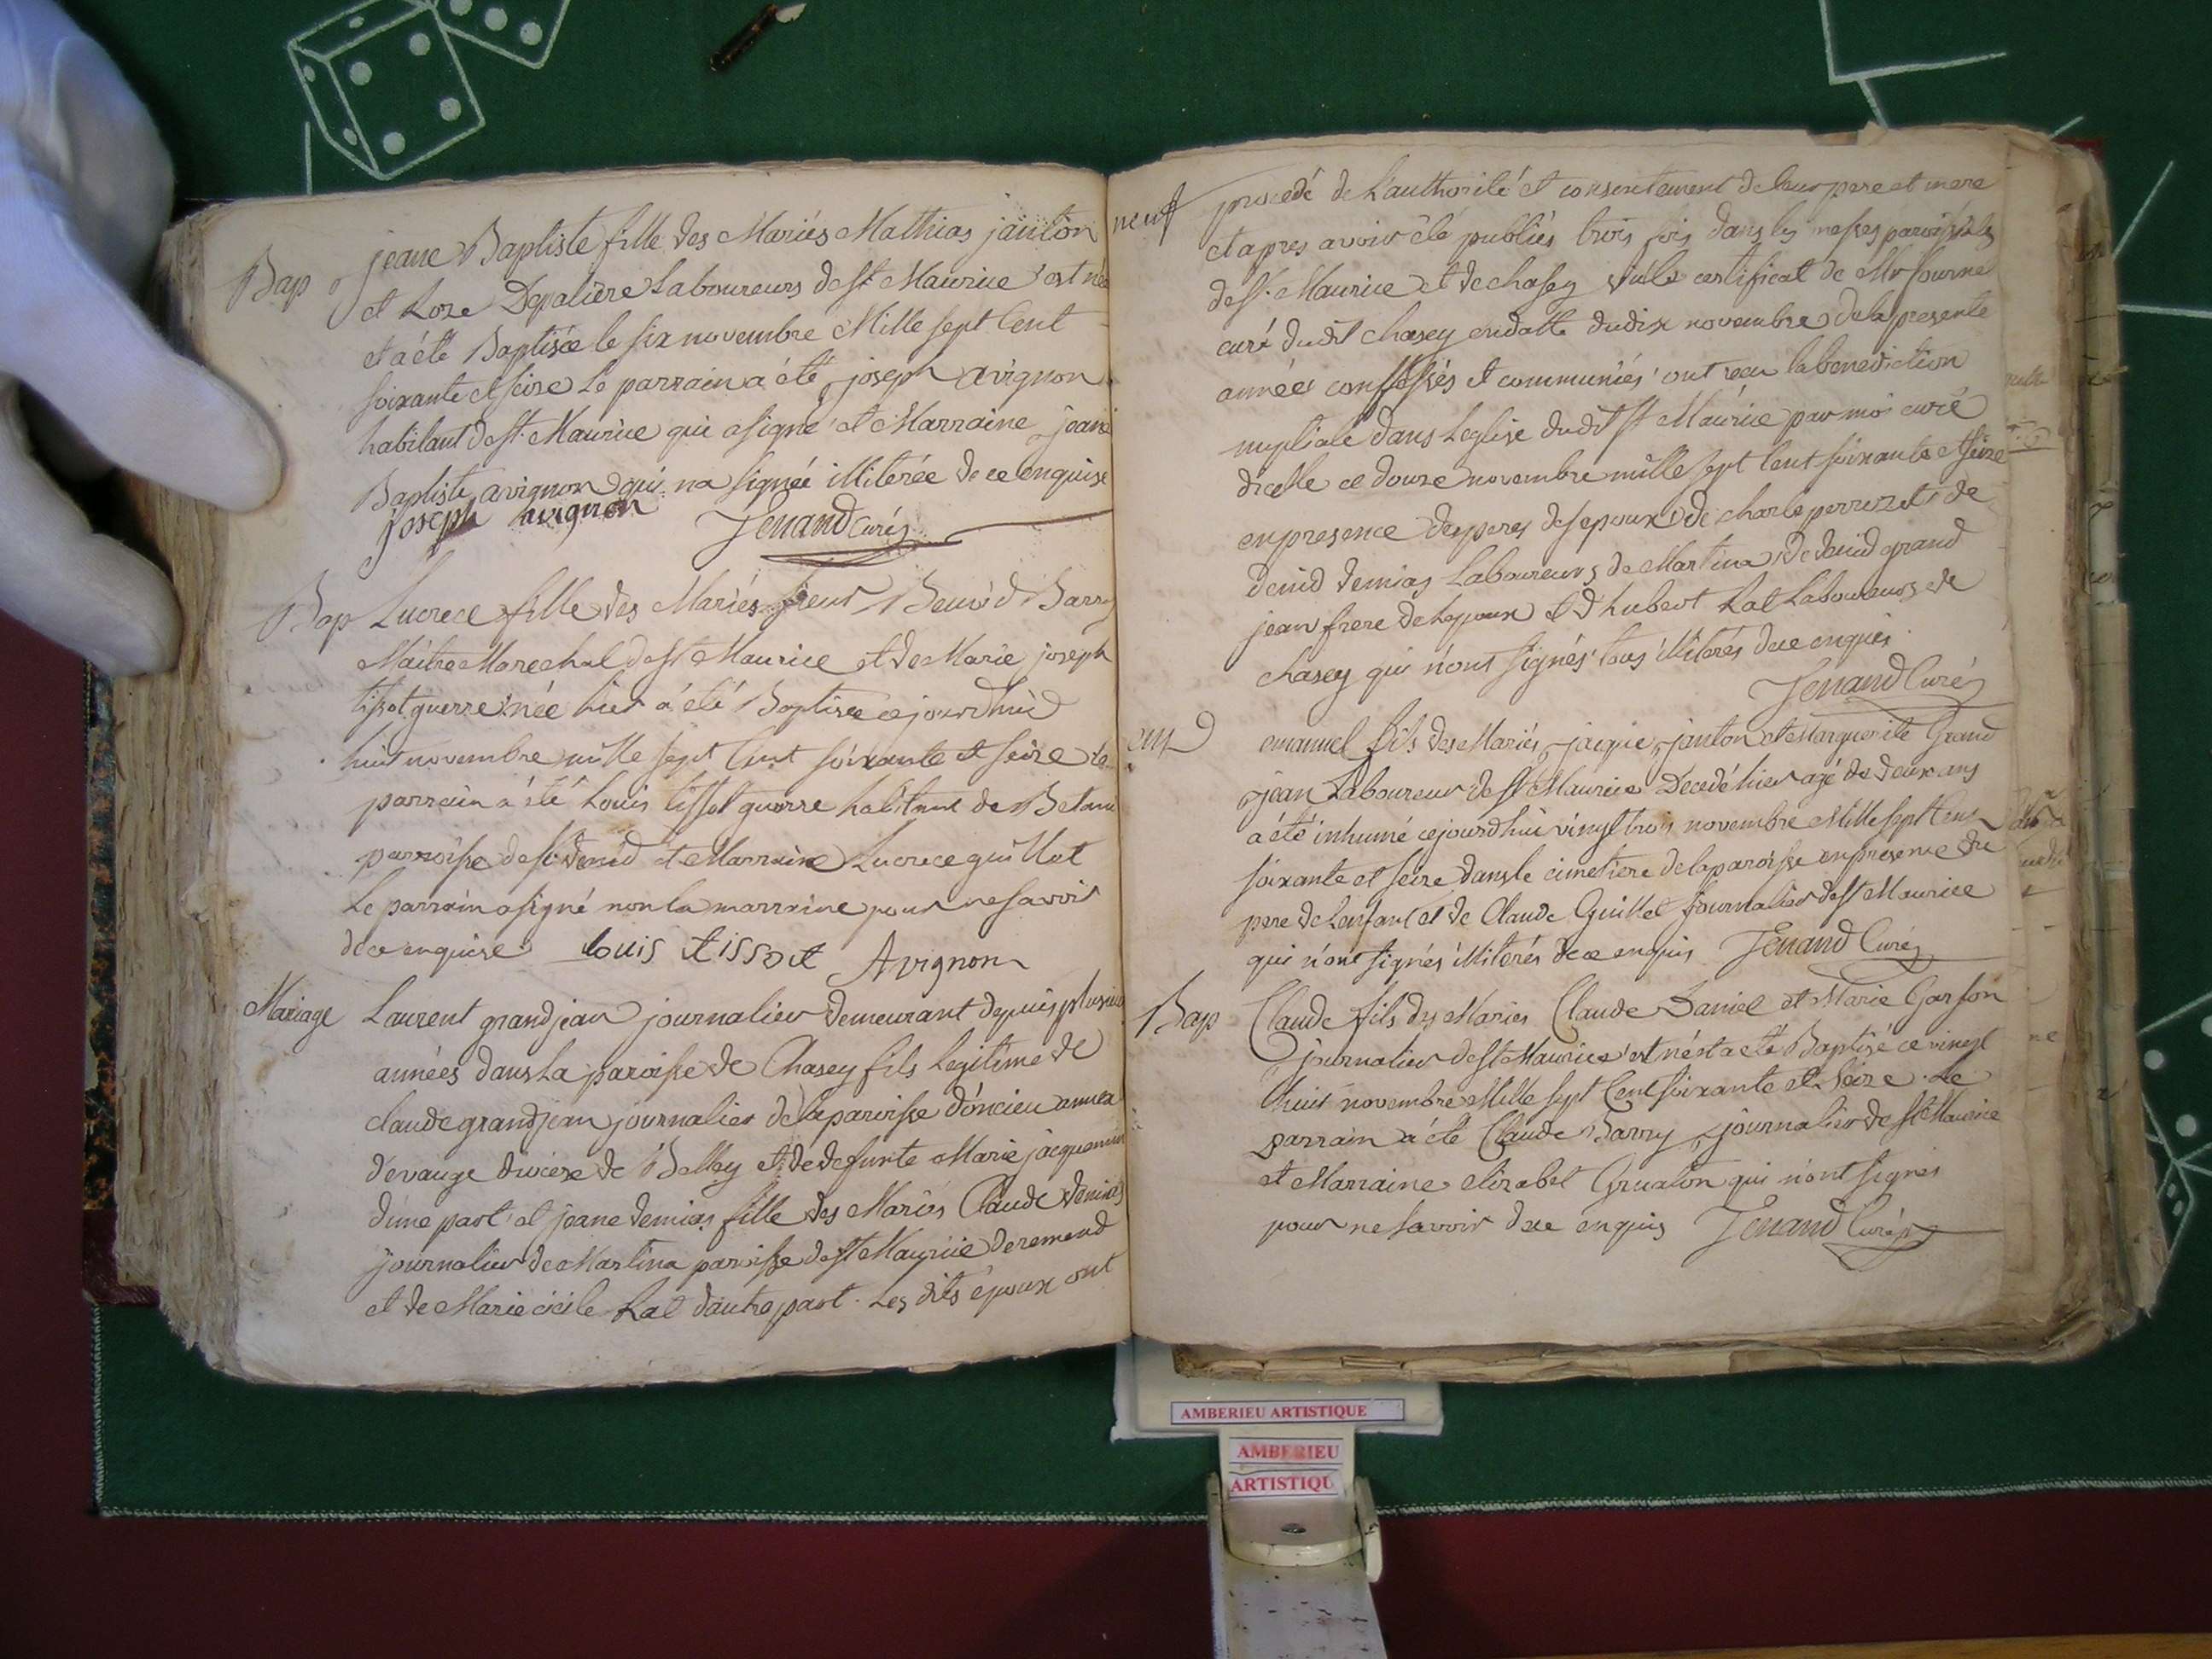 Bap jeane Baptiste fille des Mariés Mathias janton
et Loze Depalière Laboureurs de st Maurice est née
et a été Baptisée le six novembre Mille sept Cent
soixante et seize Le parrain a été joseph avignon
habitant de st. Maurice qui a signé et Marraine jeane
Baptiste avignon qui na signée illiterée de ce enquise
joseph avignon Jenand Curé
Bap Lucrece fille des Mariés sieur Benoid Barry
Maitre Marechal de st Maurice et de Marie joseph
tissot guerre née hier a été Baptisée ce jourdhuid
huit novembre mille sept Cent soixante et seize le
parrain a été Louis tissot guerre habitant de Betan
parroisse de st. denid et Marraine Lucrece guillot
Le parrain a signé non la marraine pour ne savoir
de ce enquise Louis tissot Avignon
Mariage Laurent grandjean journalier demeurant depuis plusieurs
années dans La paroisse de Chasey fils Legitime de
claude grandjean journalier de la paroisse d'oncieu annexe
d'evauge diocèse de Belley et de defunte Marie jacquemin
d'une part et jeane demias fille des Mariés Claude demias
journalier de Martina paroisse de st Maurice de remend
et de Marie cicile Lat d'autre part. Les dits époux ont
neuf procedé de L'authorité et consentement de leur pere et mere
et apres avoir été publiés trois fois dans les messes paroissiales
de st. Maurice et de chasey vu le certificat de Mr fourne
curé dudit chasey en datte du dix novembre de la presente
année confessés et communiés ont reçu la benediction
nuptiale dans Leglise dudit st Maurice par moi curé
dicelle ce douze novembre mille sept Cent soixante et seize
en presence des peres des epoux de charle perruzet de
denid demias Laboureurs de Martina de denid grand
jean frere de Lepoux et d'hubert Lat Laboureurs de
chasey qui n'ont signés tous illiterés de ce enquis
Jenand Curé
emanuel fils des Mariés jacque janton et Marguerite Grand
jean Laboureur de st Maurice Decedé hier agé de deux ans
a été inhumé cejourdhui vingt trois novembre Mille sept Cent
soixante et seize dans le cimetiere de la paroisse en presence du
pere de Lenfant et de Claude Guillet journalier de st Maurice
qui n'ont signés illiterés de ce enquis Jenand Curé
Bap Claude fils des Mariés Claude Daniel et Marie Garson
journalier de st Maurice est né et a été Baptisé ce vingt
huit novembre Mille sept Cent soixante et Seize. Le
parrain a été Claude Barry journalier de st Maurice
et Marraine elizabet Gruaton qui n'ont signés
pour ne savoir de ce enquis Jenand Curé
AMBERIEU ARTISTIQUE
AMBERIEU
ARTISTIQU